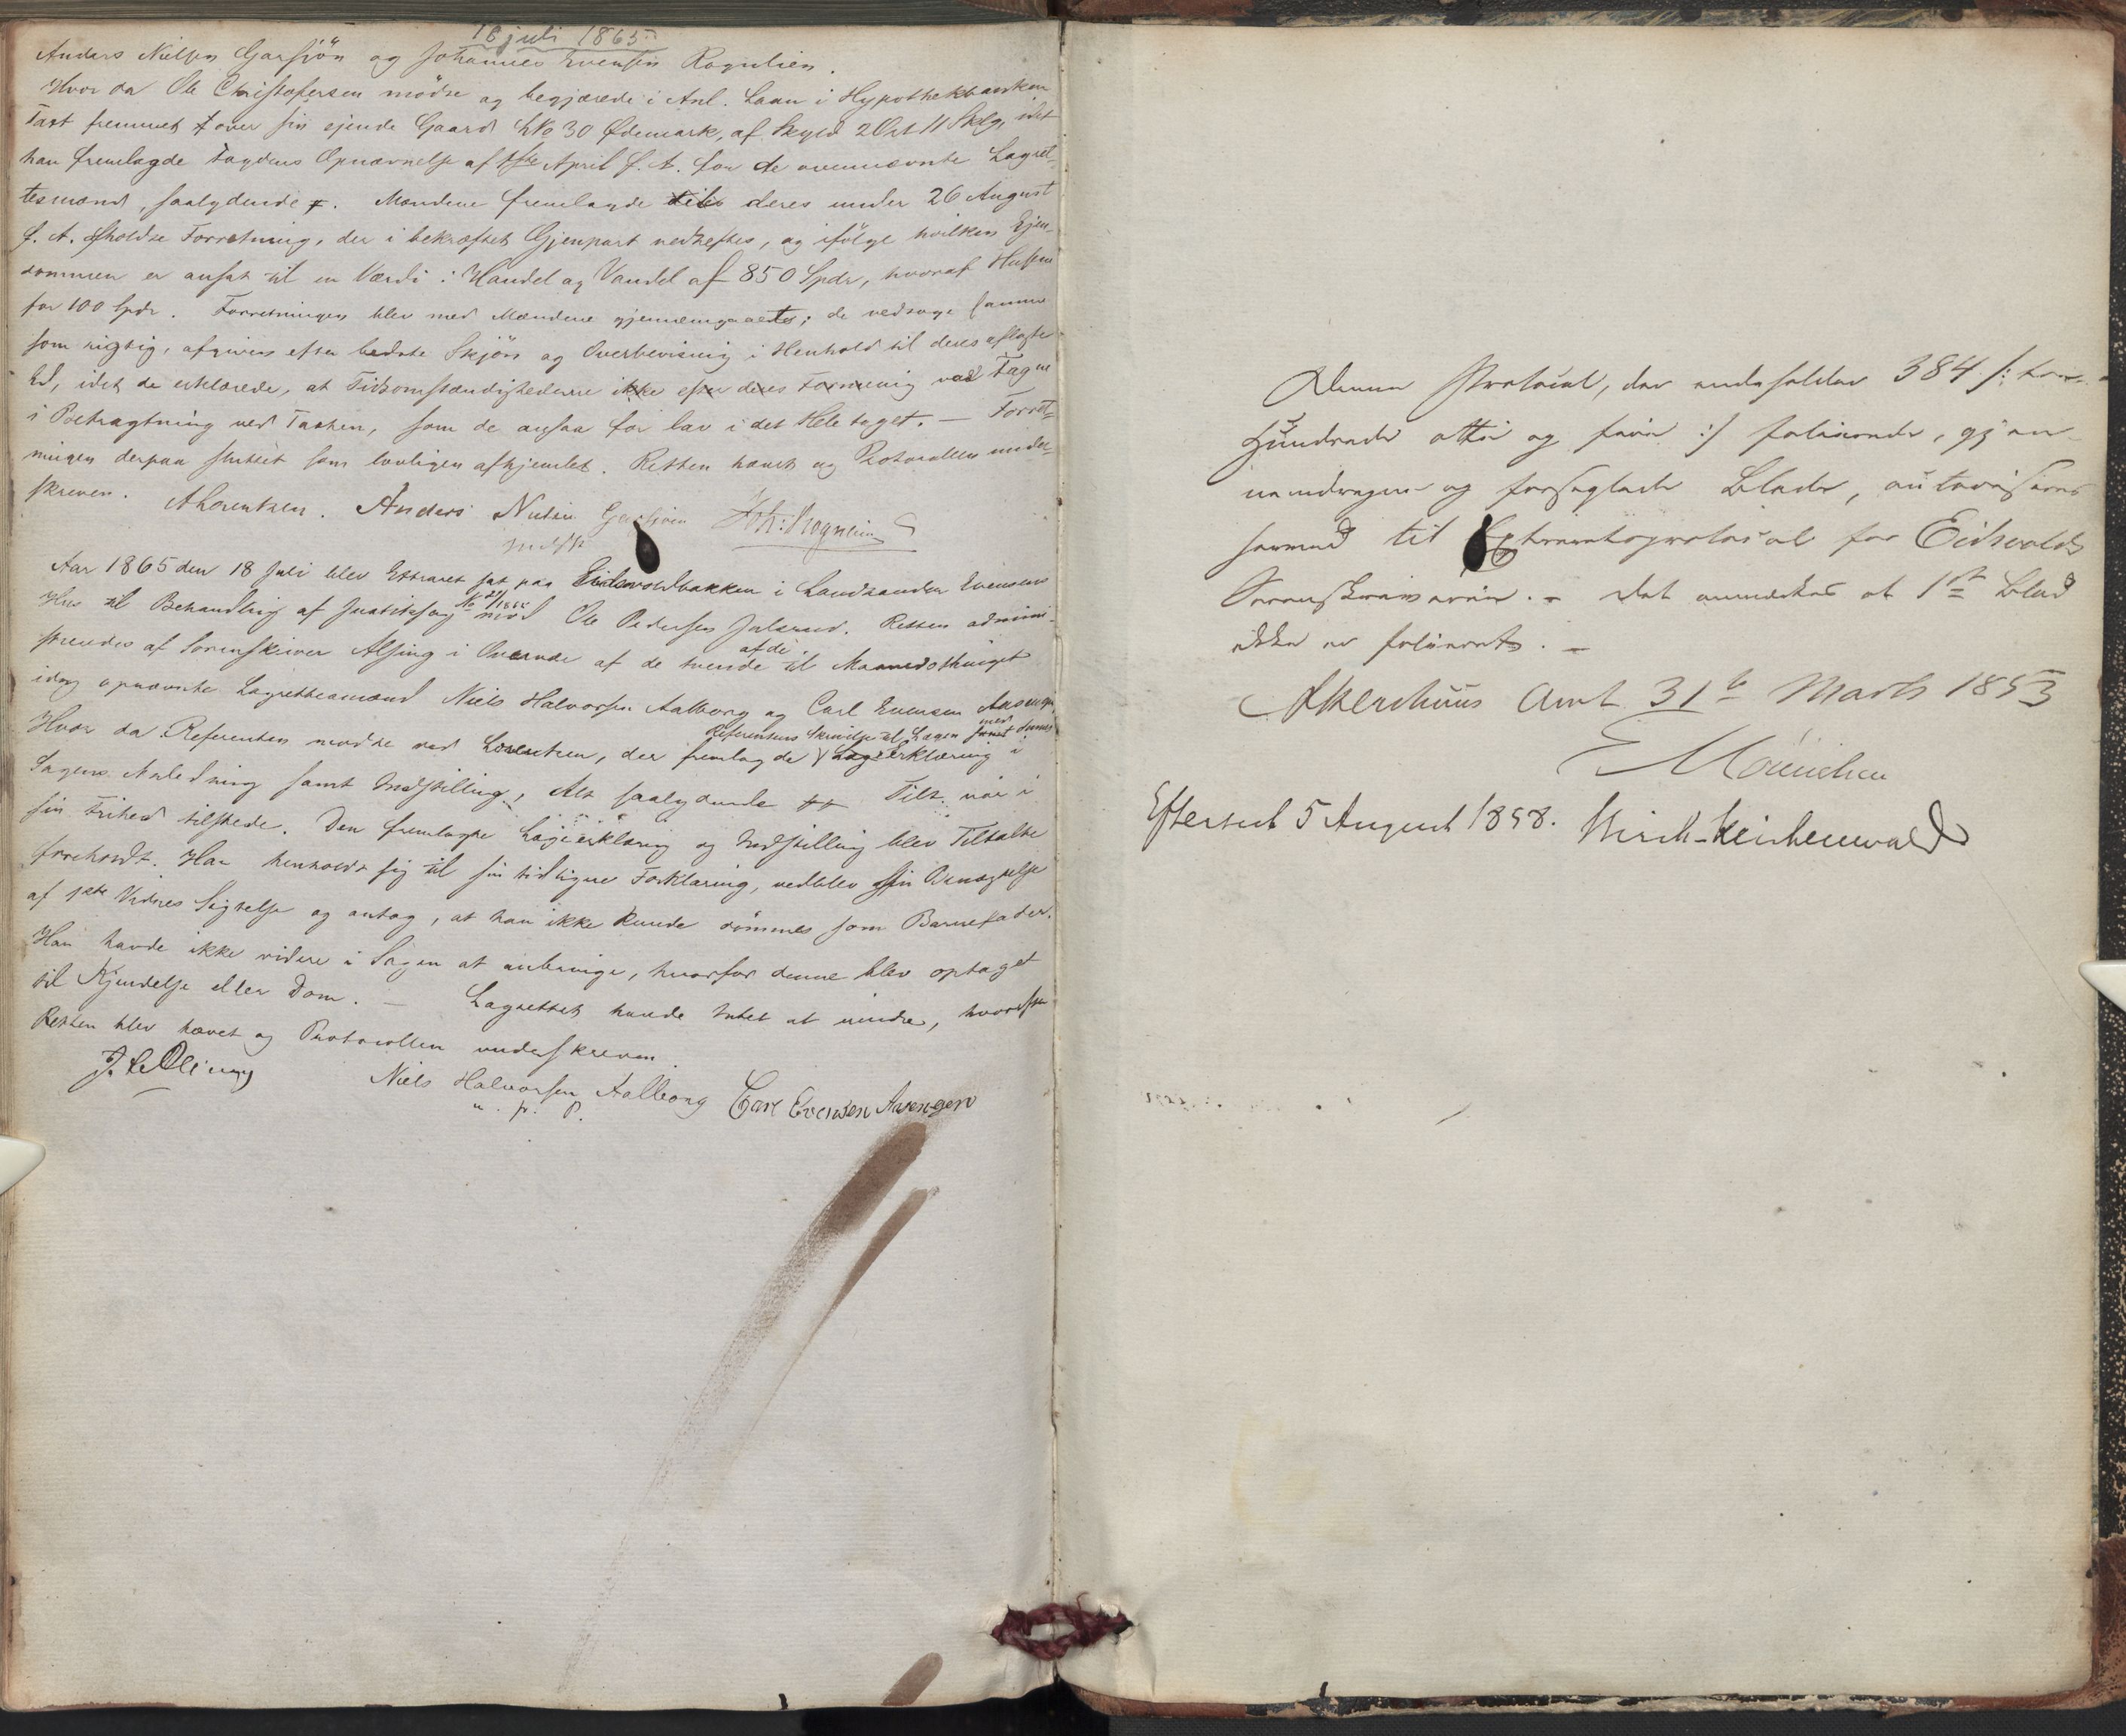 18 juli 1865
Anders Nielsen Garsjön og Johannes Evensen Rognlien.
Hvor da Ole Christofersen mödte og begjærede i Anl. Laan i Hypothekbanken
Taxt fremmet over sin ejende Gaard LNo 30 Ødemark, af Skyld 2 Ort 11 Skilg, idet
han fremlagde Fogdens Opnævnelse af April f. A. for de ovennævnte Lagret-
tesmænd, saalydende #. Mændene fremlagde deres under 26 August
f. A. afholdte Forretning, der i bekræftet Gjenpart vedheftes, og ifölge hvilken Ejen-
dommen er ansat til en Værdi i Handel og Vandel af 850 Spdr, hvoraf Husene
for 100 Spdr. Forretningen blev med Mændene gjennemgaaet; de vedtoge samme
som rigtig, afgiven efter bedste Skjön og Overbevisning i Henhold til deres aflagte
Ed, idet de erklærede, at Tidsomstændighederne ikke efter deres Formening var Tagne
i Betragtning ved Taxten, som de ansaa for lav i det Hele taget. — Forret-
ningen derpaa sluttet som lovligen afhjemlet. Retten hævet og Protocollen under-
skreven.
A Lorentzen. Anders Nielsen Garsjöen Joh: Rognlien
Aar 1865 den 18 Juli blev Extraret sat paa Eidsvoldbakken i Landhandler Evensens
Hus til Behandling af Justitssag No /1865 mod Ole Pedersen Julsrud. Retten admini-
streredes af Sorenskriver Alsing i Overvær af de tvende af de til Maanedsthinget
idag opnævnte Lagrettesmænd Niels Halvorsen Aalborg og Carl Evensen Aasengen
Hvor da Referenten mödte ved Lorentzen, der fremlagde Referentens Skrivelse til Lægen med samt dennes Erklæring i
Sagens Anledning samt Indstilling, Alt saalydende ## Tilt. var i
sin Frihed tilstede. Den fremlagte Lægeerklæring og Indstilling blev Tiltalte
foreholdt. Han henholdt sig til sin tidligere Forklaring, vedblev sin Benægtelse
af 1ste Vidnes Sigtelse og antog, at han ikke kunde dömmes som Barnefader.
Han havde ikke videre i Sagen at anbringe, hvorfor denne blev optaget
til Kjendelse eller Dom. — Lagrettet havde Intet at erindre, hvorefter
Retten blev hævet og Protocollen underskreven.
Alsing Niels Halvorsen Aalborg Carl Evensen Aasengen
m. p. P.
Denne Protocol, der indeholder 384 /: tre
Hundrede otti og fire :/ folierede, gjen-
nemdragne og forseglede Blade, autoriseres
herved til Extraretsprotocol for Eidsvolds
Sorenskriverie. – Det anmærkes at 1ste Blad
ikke er folieret. –
Akershuus Amt 31te Marts 1853
E Mouichen
Efterseet 5 August 1858. Birch-Reichenwald